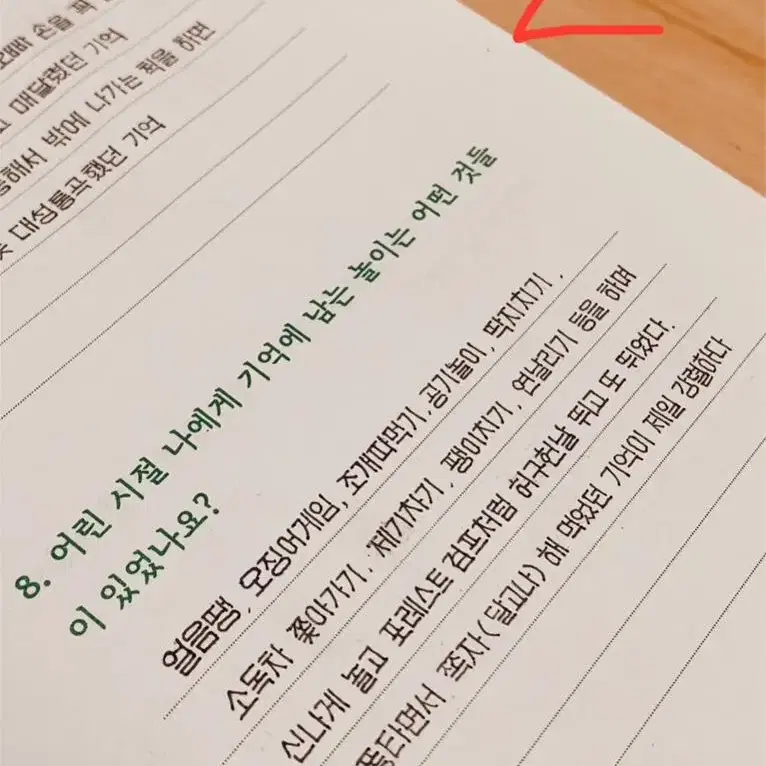 손을 꽉
매달렸던 기억
해서 밖에 나가는 획을 하면
대성통곡했던 기억
8. 어린 시절 나에게 기억에 남는 놀이는 어떤 것들
이 있었나요?
얼음땡, 오징어게임, 조개따먹기, 공기놀이, 딱지치기,
소독차 쫓아가기, 제기차기, 팽이치기, 연날리기 등을 하며
신나게 놀고 포레스트 검프처럼 허구헌날 뛰고 또 뛰었다.
쪽자(달고나) 해 먹었던 기억이 제일 강렬하다